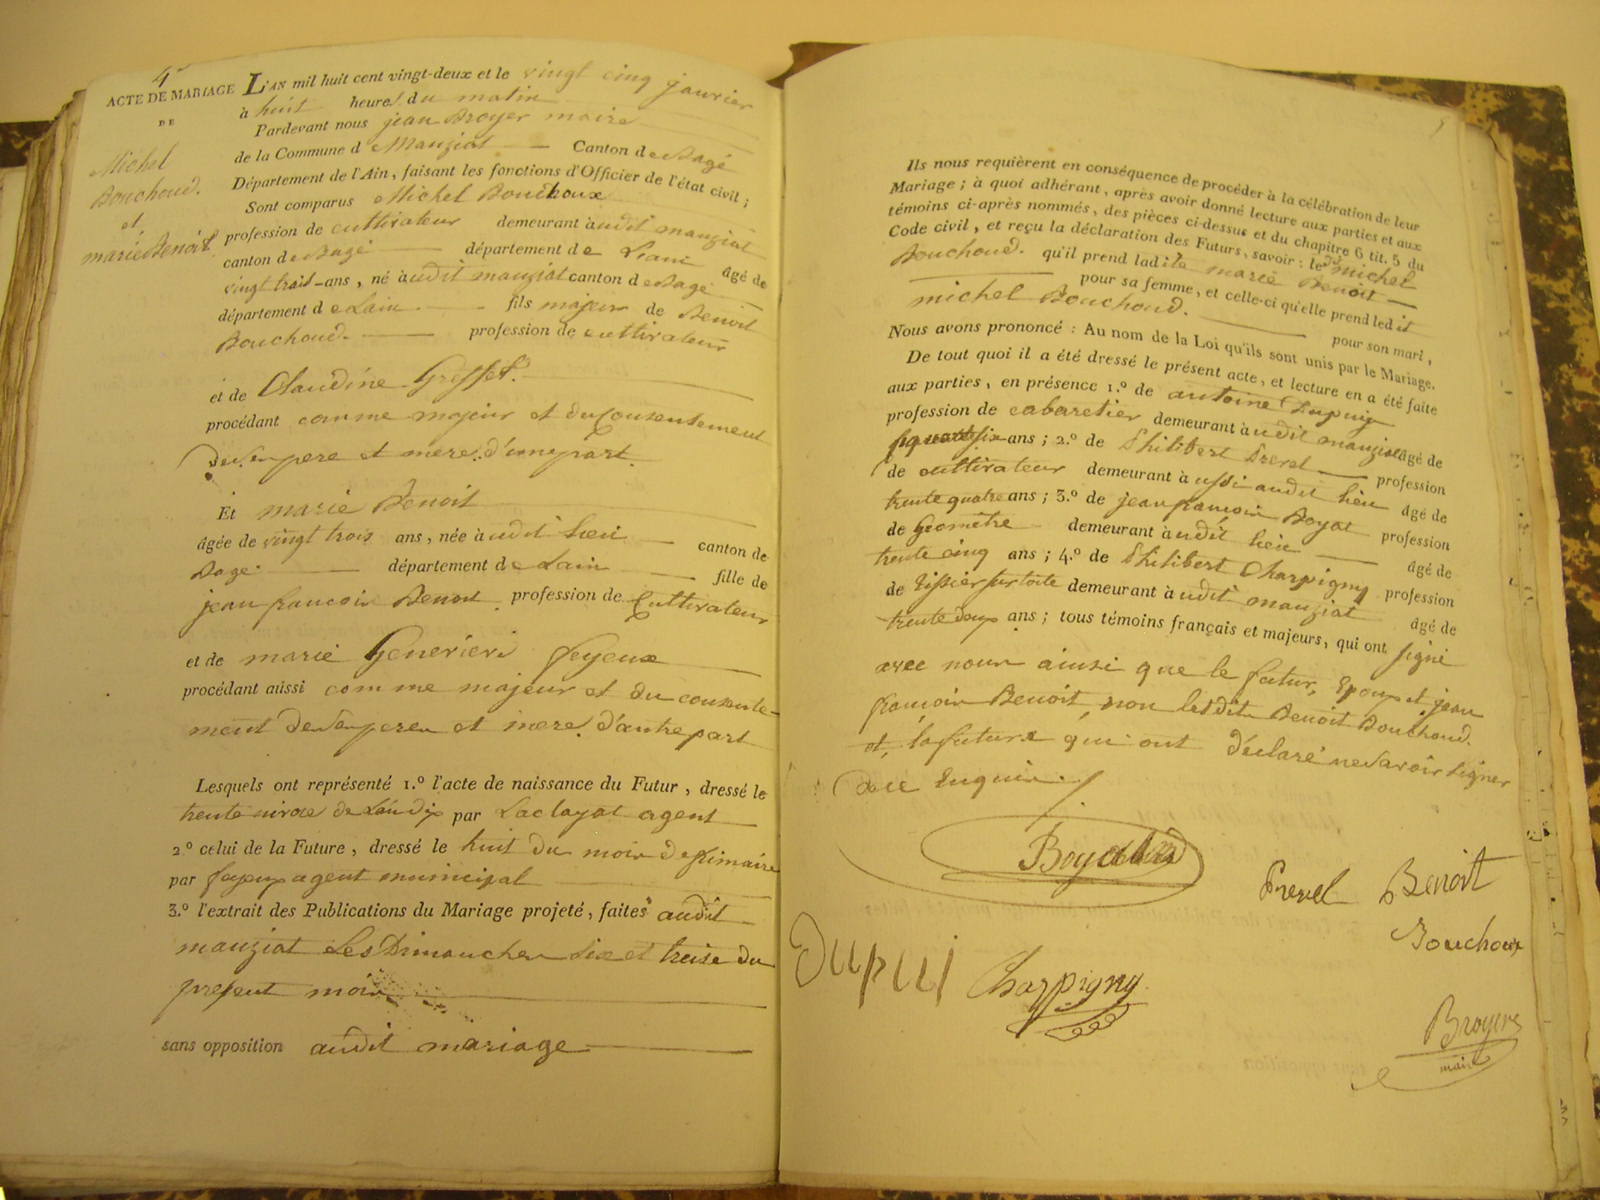 4
ACTE DE MARIAGE
DE
Michel
Bouchoud.
et
marie Benoit.
L'AN mil huit cent vingt-deux et le vingt cinq janvier
à huit heures du matin
Pardevant nous jean Broyer maire
de la Commune d Manziat Canton de Bagé
Département de l'Ain, faisant les fonctions d'Officier de l'état civil ;
Sont comparus Michel Bouchoux
profession de cultivateur demeurant audit manziat
canton de Bagé département de Lain âgé de
vingt trois ans, né audit manziat canton de Bagé
département de Lain fils majeur de Benoit
Bouchoud. profession de cultivateur
et de Claudine Griffet.
procédant comme majeur et du Consentement
de ses pere et mere. d'une part.
Et marie Benoit
âgée de vingt trois ans, née audit lieu canton de
Bagé département de Lain fille de
jean francois Benoit profession de Cultivateur
et de marie feyeux
procédant aussi comme majeur et du consente-
ment de ses peres et mere. d'autre part
Lesquels ont représenté 1.º l'acte de naissance du Futur, dressé le
trente nivose de L'an dix par agent
2.º celui de la Future, dressé le huit du mois de frimaire
par feyeux agent municipal
3.º l'extrait des Publications du Mariage projeté, faites audit
manziat Les Dimanches six et treize du
present mois
sans opposition audit mariage
Ils nous requièrent en conséquence de procéder à la célébration de leur
Mariage ; à quoi adhérant, après avoir donné lecture aux parties et aux
témoins ci-après nommés, des pièces ci-dessus et du chapitre 6 tit. 5 du
Code civil, et reçu la déclaration des Futurs, savoir : led michel
Bouchoud. qu'il prend ladite marie Benoit
pour sa femme, et celle-ci qu'elle prend ledit
michel Bouchoud. pour son mari,
Nous avons prononcé : Au nom de la Loi qu'ils sont unis par le Mariage.
De tout quoi il a été dressé le présent acte, et lecture en a été faite
aux parties, en présence 1.º de antoine Dupuy
profession de cabaretier demeurant audit manziat âgé de
six ans ; 2.º de Philibert Prevel profession
de cultivateur demeurant aussi audit lieu âgé de
trente quatre ans ; 3.º de jean francois Boyat profession
de Géomètre demeurant audit lieu âgé de
trente cinq ans ; 4.º de Philibert Charpigny profession
de Tissier sur toile demeurant audit manziat âgé de
trente deux ans ; tous témoins français et majeurs, qui ont signé
avec nous ainsi que le futur, Epoux et jean
francois Benoit non lesdits Benoit Bouchoud.
et, la future qui ont déclaré ne savoir signer
de ce Enquis.
Boyat
Prevel Benoit
Bouchoux
Dupui
Charpigny
Broyer
maire